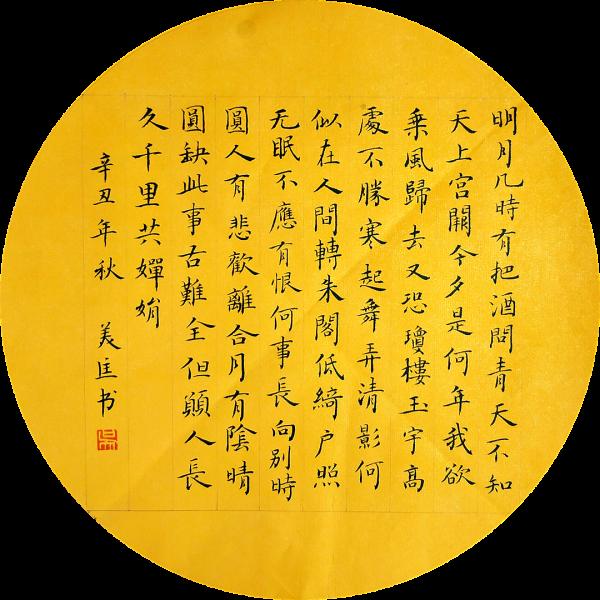 明月几時有把酒問青天不知
天上宫闕今夕是何年我欲
乘風歸去又恐瓊樓玉宇高
處不勝寒起舞弄清影何
似在人間轉朱閣低綺户照
无眠不應有恨何事長向别時
圓人有悲歡離合月有陰晴
圓缺此事古難全但願人長
久千里共嬋娟
辛丑年秋 美匡书